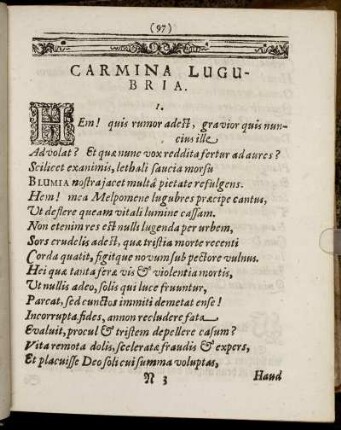 (97)
CARMINA LUGU-
BRIA.
I.
HEm! quis rumor adest, gravior quis nun-
cius ille
Advolat? Et quæ nunc vox reddita fertur ad aures?
Scilicet exanimis, lethali saucia morsu
BLUMIA nostra jacet multâ pietate refulgens.
Hem! mea Melpomene lugubres præcipe cantus,
Ut deflere queam vitali lumine cassam.
Non etenim res est nulli lugenda per urbem,
Sors crudelis adest, quæ tristia morte recenti
Corda quatit, figitque novum sub pectore vulnus.
Hei quæ tanta feræ vis & violentia mortis,
Ut nullis adeo, solis qui luce fruuntur,
Parcat, sed cunctos immiti demetat ense!
Incorrupta fides, annon recludere fata
Evaluit, procul & tristem depellere casum?
Vita remota dolis, sceleratæ fraudis & expers,
Et placuisse Deo soli cui summa voluptas,
N 3 Haud